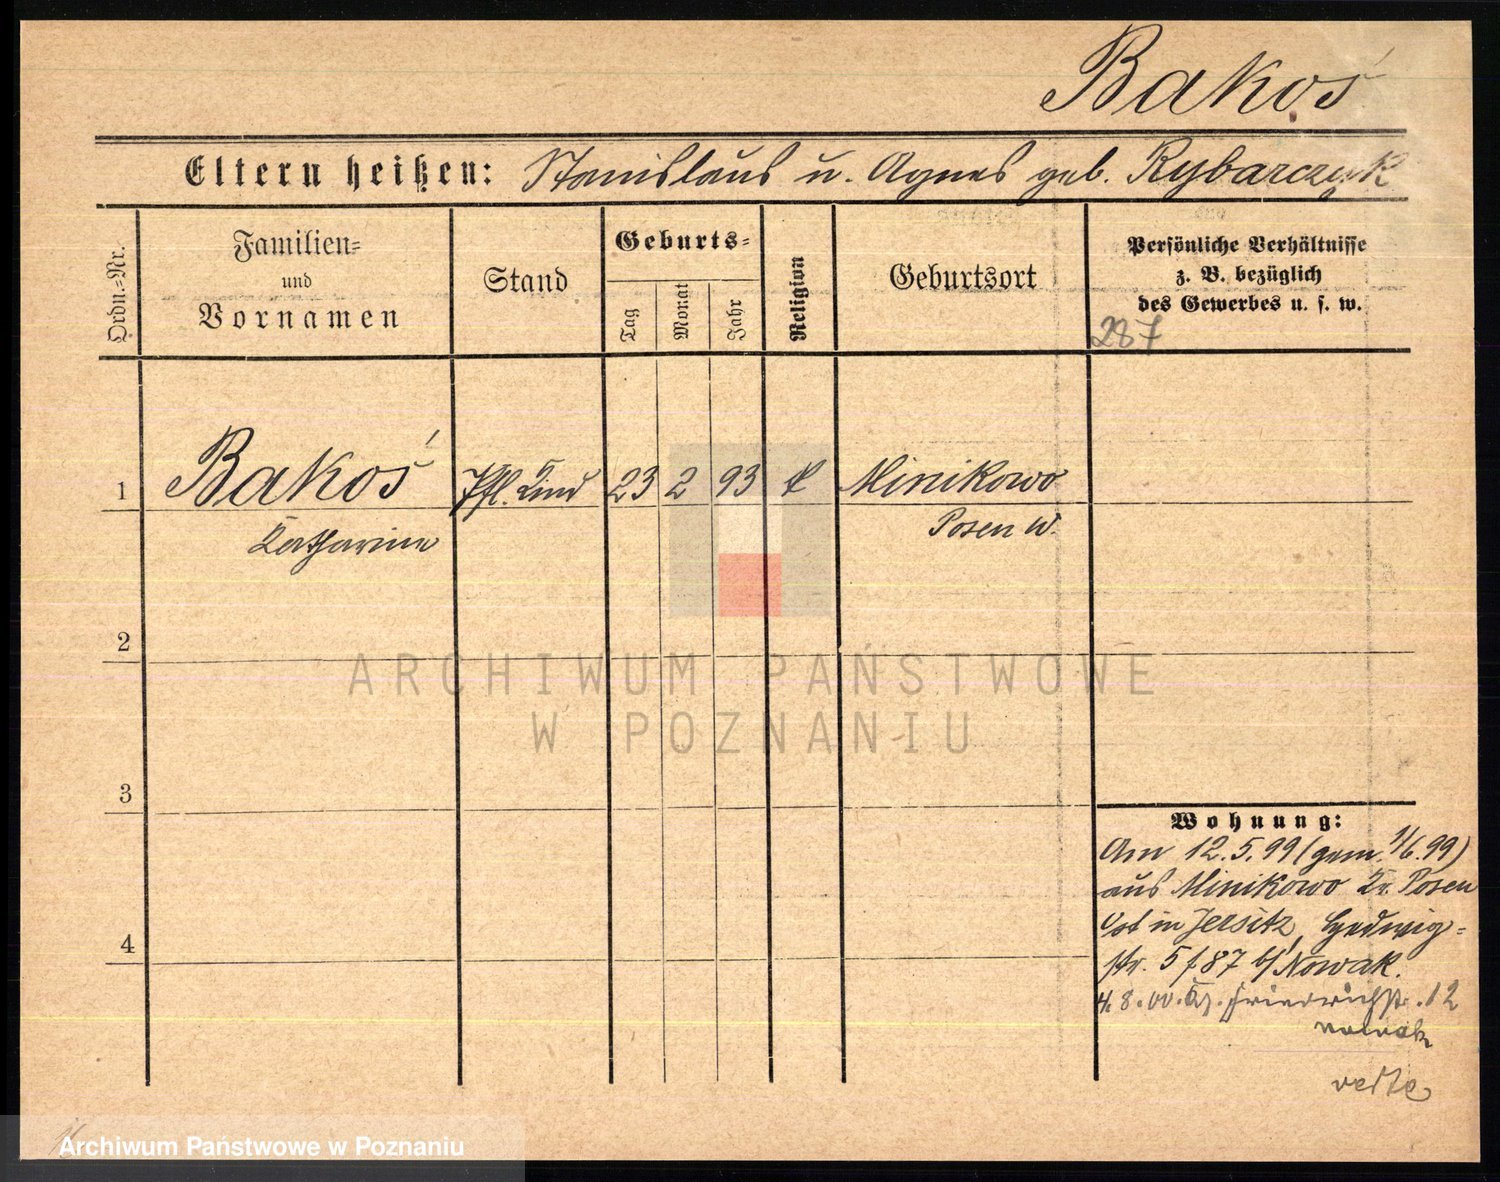 Bakoś
Eltern heißen: Stanislaus u. Agnes geb. Rybarczyk
Ordn.-Nr.
Familien-
und
Vornamen
Stand
Geburts-
Tag
Monat
Jahr
Religion
Geburtsort
Persönliche Verhältnisse
z. B. bezüglich
des Gewerbes u. s. w.
287
1 Bakoś Pfl. Kind 23 2 93 k Minikowo
Katharina Posen W.
2
ARCHIWUM PAŃSTWOWE
W POZNANIU
3
Wohnung:
Am 12.5.99 (gem. 1/6.99)
aus Minikowo Kr. Posen
Ost in Jersitz, Hedwig-
str. 5 f 87 b/ Nowak.
4
4.8.00. Friedrichstr. 12
Nowak
Archiwum Państwowe w Poznaniu